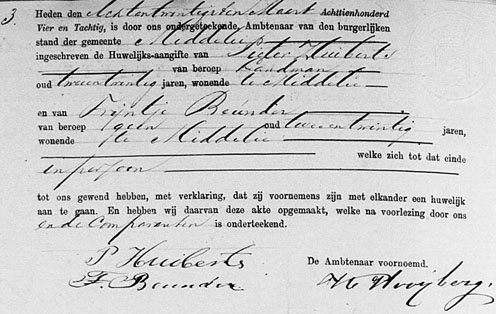 3
Heden den Achtentwintigsten Maart Achttienhonderd
Vier en Tachtig, is door ons ondergeteekende, Ambtenaar van den burgerlijken
stand der gemeente Middelie
ingeschreven de Huwelijks-aangifte van Pieter Huiberts
van beroep Landman
oud tweeentwintig jaren, wonende te Middelie
en van Trijntje Beunder
van beroep geen oud tweeentwintig jaren,
wonende te Middelie
welke zich tot dat einde
in persoon
tot ons gewend hebben, met verklaring, dat zij voornemens zijn met elkander een huwelijk
aan te gaan. En hebben wij daarvan deze akte opgemaakt, welke na voorlezing door ons
en de Comparanten is onderteekend.
P Huiberts
T. Beunder
De Ambtenaar voornoemd.